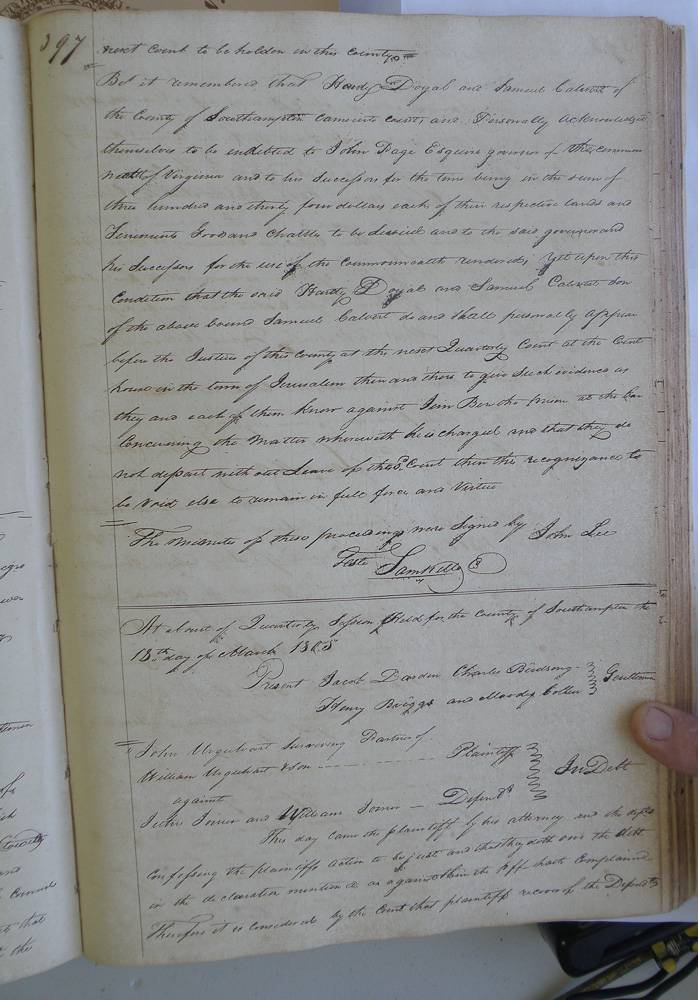 397
next Court to be holden in this County
Be it remembered that Hardy Doyal and Samuel Calvert of
the County of Southampton came into court, and Personally acknowledged
themselves to be indebted to John Page Esquire governor of the common
wealth of Virginia and to his Successors for the time being in the sum of
three hundred and thirty four dollars each of their respective lands and
Tenements Goods and Chattles to be levied and to the said governor and
his Successors for the use of the Commonwealth rendered; Yet upon this
Condition that the said Hardy Doyal and Samuel Calvert son
of the above bound Samuel Calvert do and shall personally appear
before the Justices of this County at the next Quarterly Court at the Court
house in the town of Jerusalem then and there to give such evidence as
they and each of them know against Jem Ben the Prisoner at the bar
Concerning the matter wherewith he is charged and that they do
not depart without Leave of the sd. Court then this recognizance to
be void else to remain in full force and Virtue
The minutes of these proceedings were Signed by John Lee
Teste Saml Kello C
At a Court of Quarterly Session Held for the County of Southampton the
18th day of March 1805
Present Jacob Darden Charles Birdsong
Henry Briggs and Moody Cotten Gentlemen
John Urquhart Surviving Partner of
William Urquhart & Son Plaintiff
against In Debt
Joiner and William Joiner Defendts
This day came the plaintiff by his attorney and the defts
Confessing the plaintiffs action to be just and that they doth owe the debt
in the declaration mention'd as against them the Plff hath Complained
Therefore it is considered by the Court that plaintiff recover of the Defendts